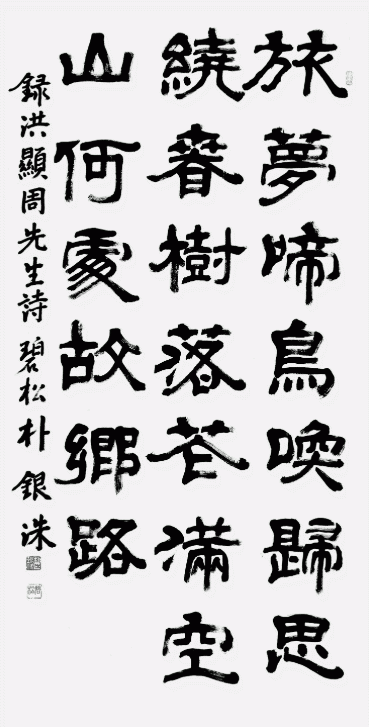 旅夢啼鳥喚歸思
繞春樹落花滿空
山何處故鄕路
録洪顯周先生詩 碧松 朴銀洙